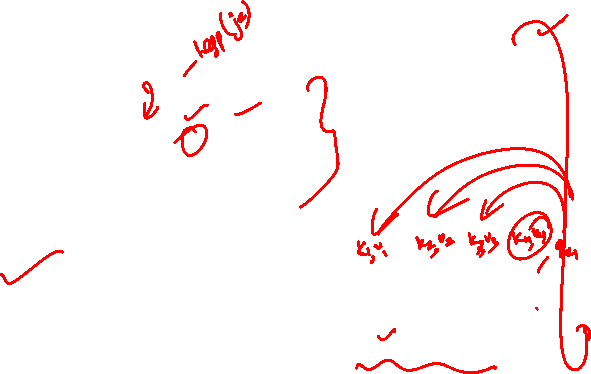 -log p(jc)
k1,v1 k2,v2 k3,v3 k4,v4 q4